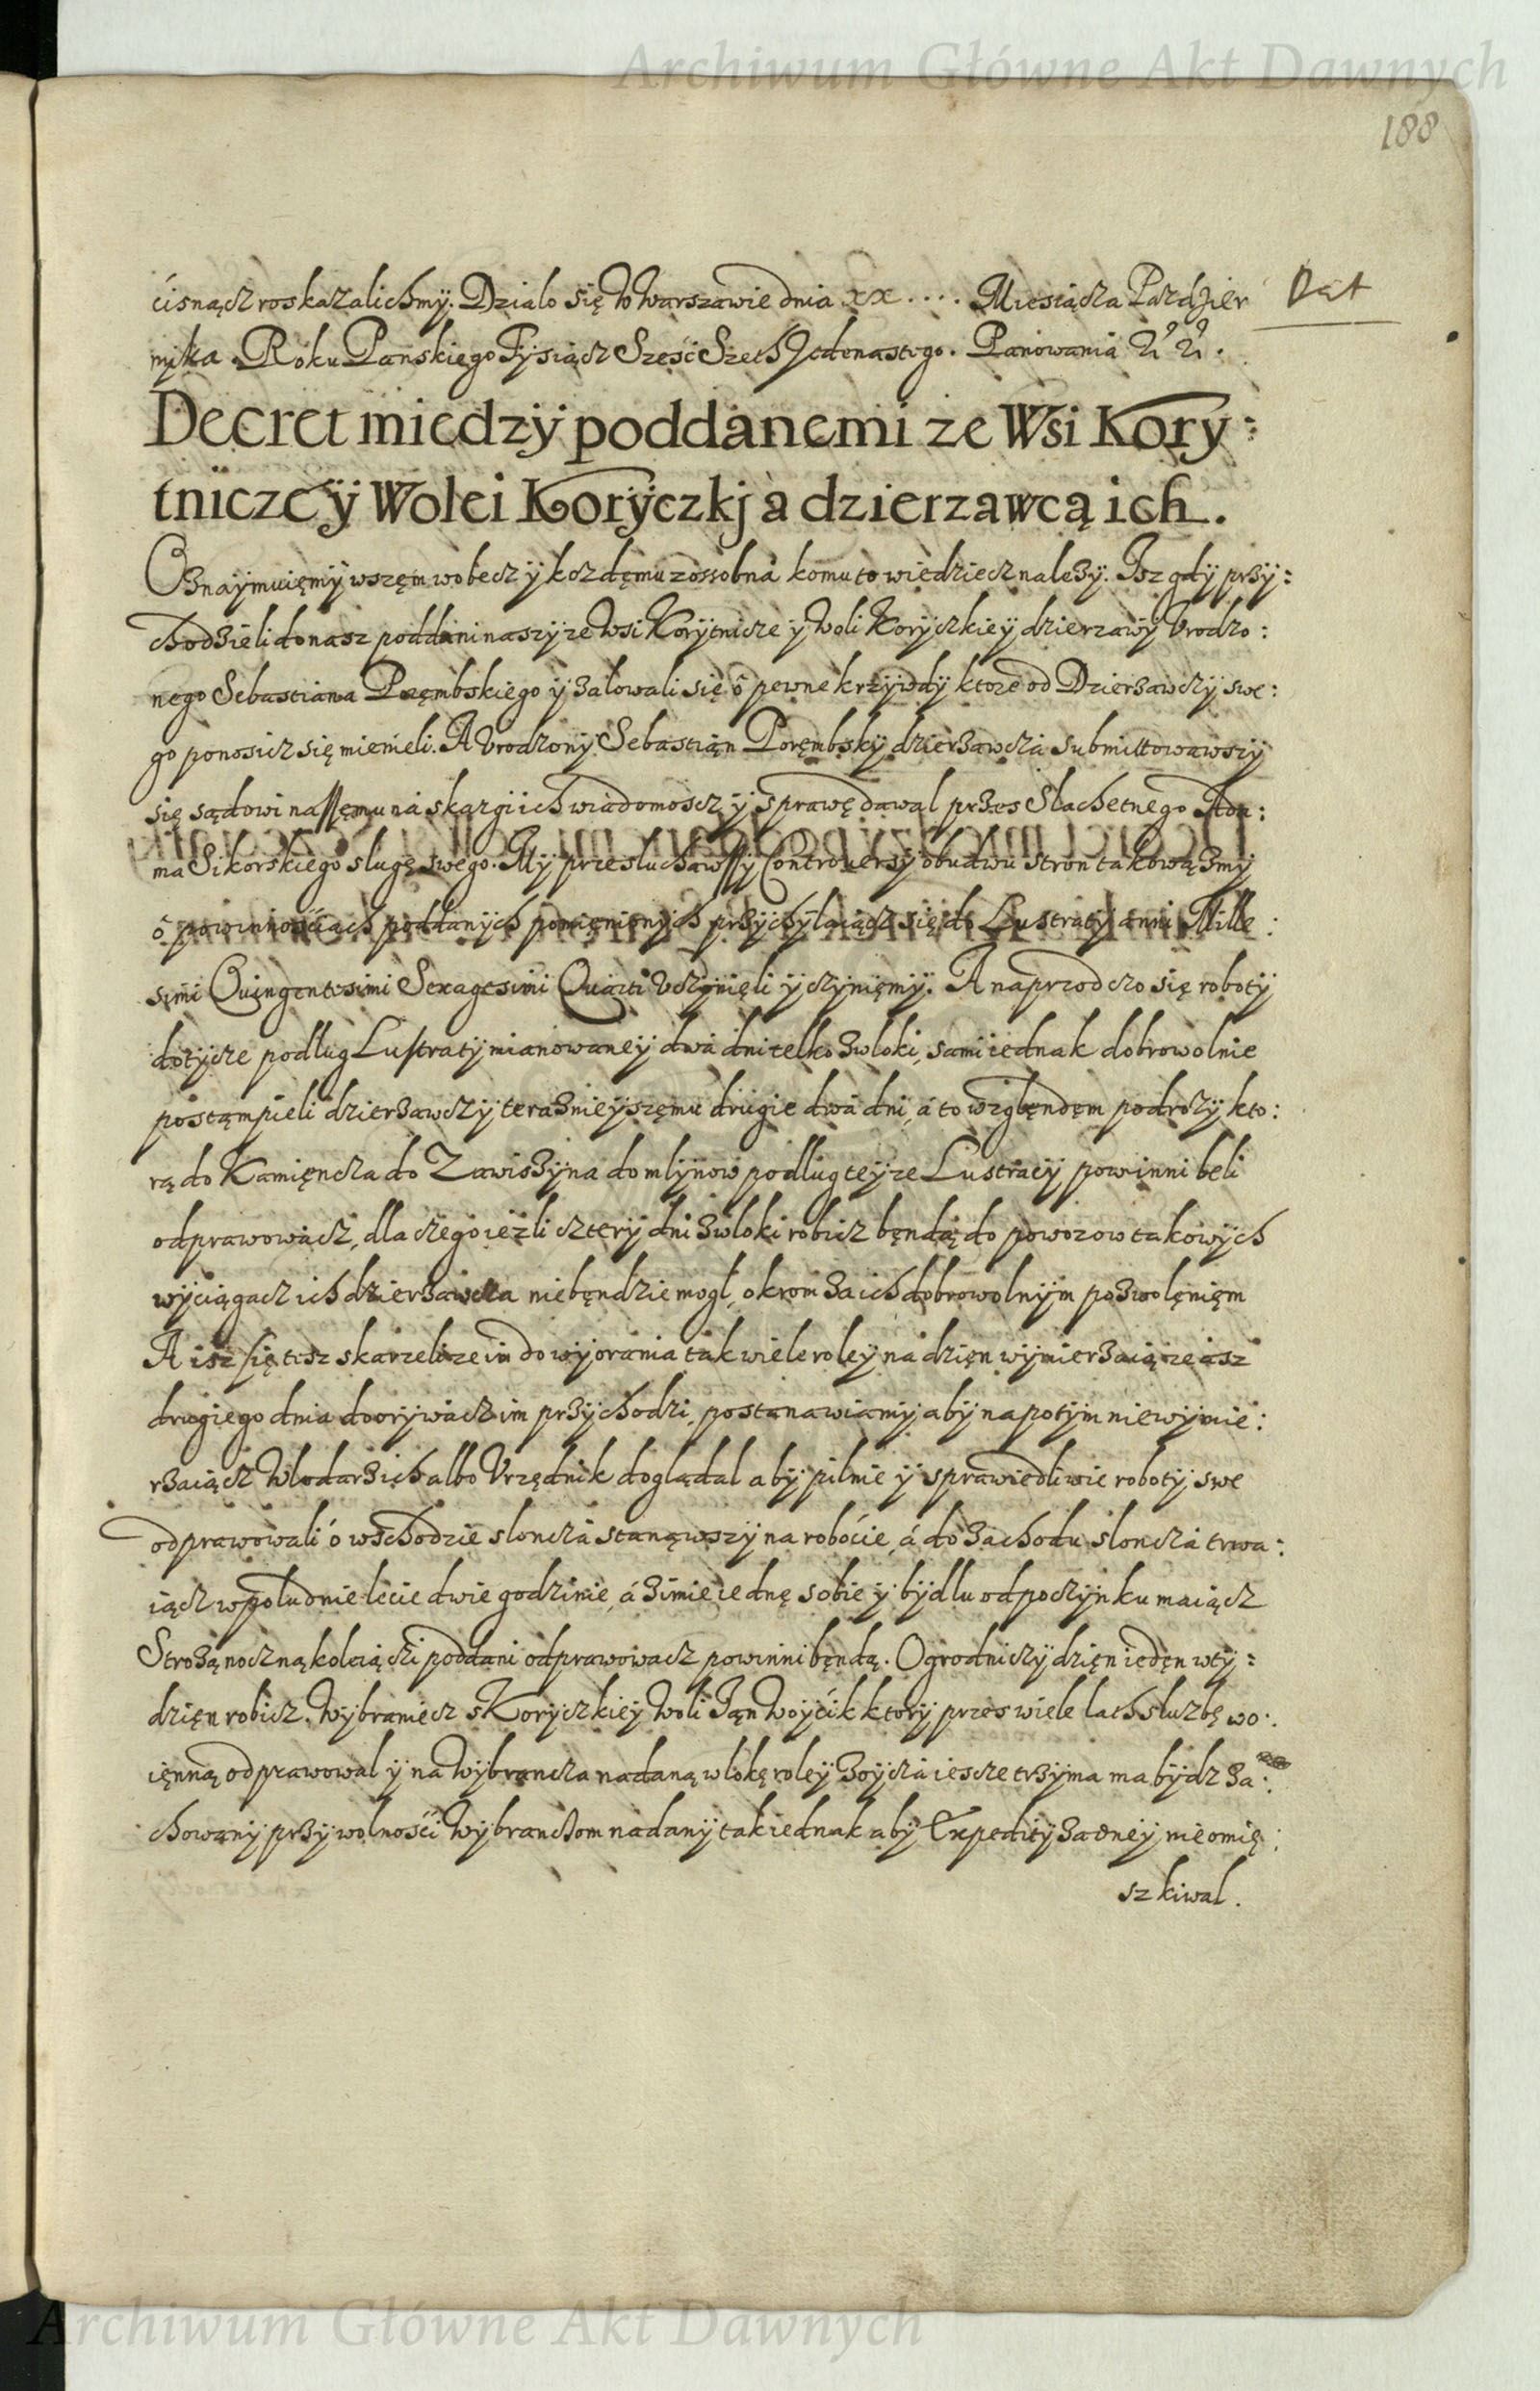 Archiwum Główne Akt Dawnych
188
ćisnącz roskazalichmÿ. Dzialo się w Warszawie dnia xx .... Miesiącza Pazdzier Dat
nika. Roku Panskiego Tysiącz Sześć Seth Jedenastego. Panowania &c &c.
Decret miedzÿ poddanemi ze Wsi Korÿ:
tnicze ÿ Wolei Korÿczkj à dzierzawcą ich.
Oznaÿmuięmÿ wszęm wobecz ÿ kozdęmu zossobna komu to wiedziecz nalezÿ. Isz gdÿ przÿ:
chodzieli do nasz poddani naszÿ ze Wsi Korÿtnicze ÿ Woli Korÿczkieÿ dzierzawÿ Vrodzo:
nego Sebastiana Poręmbskiego ÿ zalowali się ô pewne krzÿwdÿ ktore od Dzierzawczÿ swe:
go ponosicz się mienieli. A Vrodzonÿ Sebastian Poręmbskÿ dzierzawcza submittowawszÿ
się sądowi nassęmu nà skargi ich wiadomoscz ÿ sprawę dawal przes Slachetnego Ada:
ma Sikorskiego slugę swego. Mÿ przesluchawssÿ Controversÿ obudwu stron takową zmÿ
ô powinnośćiach poddanÿch pomięnionÿch przÿchÿlaiącz się do Lustratÿ anni Mille:
simi Quingentesimi Sexagesimi Quarti vczÿnięli ÿ czÿnięmÿ. A naprzod czo się robotÿ
dotÿcze podlug Lustratÿ mianowaneÿ dwà dni telko z wloki, sami iednak dobrowolnie
postąmpieli dzierzawczÿ teraznieÿszęmu drugie dwà dni, á to wzglęndęm podrozÿ kto:
rą do Kamięncza do Zawiszÿna do mlÿnow podlug teÿze Lustraciÿ powinni beli
odprawowacz, dla czego iezli czterÿ dni z wloki robicz będą do powozow takowÿch
wÿciągacz ich dzierzawcza niebęndzie mogł, okrom za ich dobrowolnÿm pozwolęnięm
A isz się tesz skarzeli ze im do wÿorania tak wiele roleÿ na dzięn wÿmierzaią ze asz
drugiego dnia doorÿwacz im przÿchodzi, postanawiamÿ abÿ napotÿm nie wÿmie:
rzaiącz Wlodarz ich albo Vrzędnik doglądal abÿ pilnie ÿ sprawiedliwie robotÿ swe
odprawowali ó wschodzie slonczà stanąwszÿ na robócie, á do zachodu slonczà trwa:
iącz w poludnie lecie dwie godzinie, á zimie iednę sobie ÿ bÿdlu odpoczÿnku maiącz
Strozą nocznąkoleią ci poddani odprawowacz powinni będą. Ogrodniczÿ dzięn iedęn w tÿ:
dzięn robicz. Wÿbraniecz s Korÿczkieÿ Woli Jan Woÿćik ktorÿ przes wiele lath sluzbę wo:
ięnną odprawowal ÿ na Wÿbrancza nadaną wlokę roleÿ zoÿczà iescze trzÿma ma bÿdz za:
chowanÿ przÿ wolnośći Wÿbranczom nadanÿ tak iednak abÿ Expeditÿ zadneÿ nie omię:
szkiwal.
Archiwum Główne Akt Dawnych